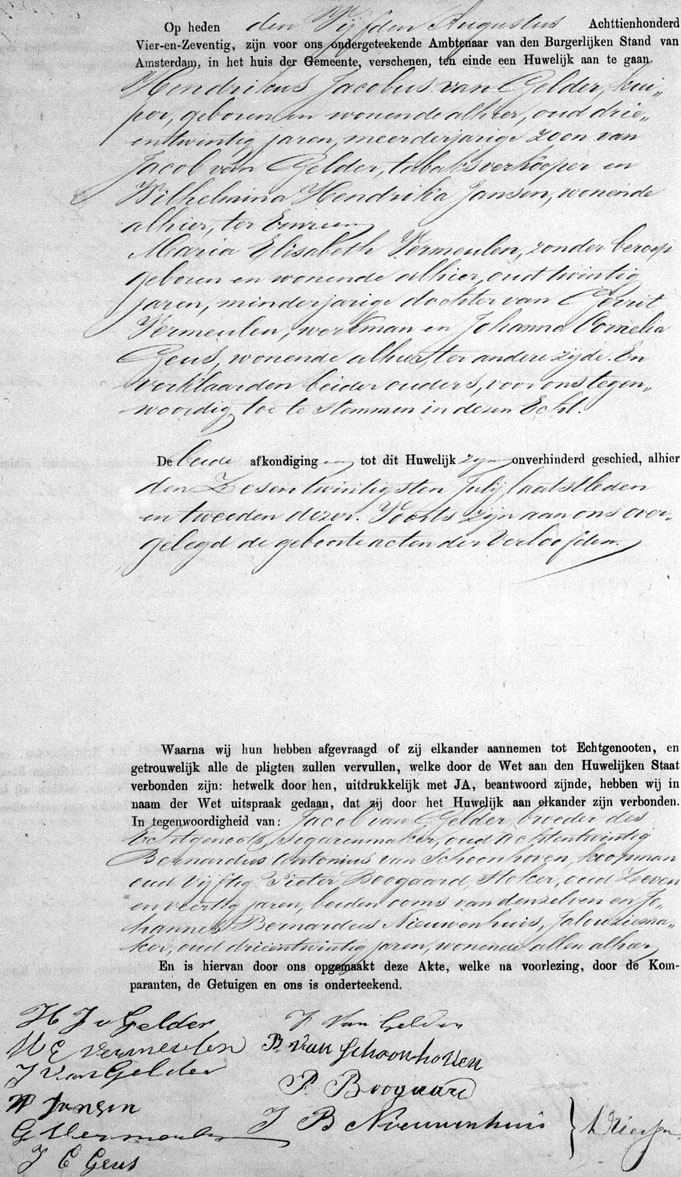 Op heden den Vijfden Augustus Achttienhonderd
Vier-en-Zeventig, zijn voor ons ondergeteekende Ambtenaar van den Burgerlijken Stand van
Amsterdam, in het huis der Gemeente, verschenen, ten einde een Huwelijk aan te gaan
Hendrikus Jacobus van Gelder, kui-
per, geboren en wonende alhier, oud drie-
entwintig jaren, meerderjarige zoon van
Jacob van Gelder, tabaksverkooper en
Wilhelmina Hendrika Jansen, wonende
alhier, ter eenre en
Maria Elisabeth Vermeulen, zonder beroep
geboren en wonende alhier, oud twintig
jaren, minderjarige dochter van Gerrit
Vermeulen, werkman en Johanna Cornelia
Geus, wonende alhier ter andere zijde. En
verklaarden beider ouders, voor ons tegen-
woordig toe te stemmen in dezen Echt.
De beide afkondigingen tot dit Huwelijk zijn onverhinderd geschied, alhier
den Zesentwintigsten Julij laatstleden
en tweeden dezer. Voorts zijn aan ons over-
gelegd de geboorteacten der Verloofden.
Waarna wij hun hebben afgevraagd of zij elkander aannemen tot Echtgenooten, en
getrouwelijk alle de pligten zullen vervullen, welke door de Wet aan den Huwelijken Staat
verbonden zijn: hetwelk door hen, uitdrukkelijk met JA, beantwoord zijnde, hebben wij in
naam der Wet uitspraak gedaan, dat zij door het Huwelijk aan elkander zijn verbonden.
In tegenwoordigheid van: Jacob van Gelder, broeder des
Echtgenoots, Sigarenmaker, oud Achtentwintig
Bernardus Antonius van Schoonhoven, koopman
oud Vijftig Pieter Boogaard, Stoker, oud Zeven
en veertig jaren, beiden ooms van denzelven en Jo-
hannes Bernardus Nieuwenhuis, Jalouziema-
ker, oud drieentwintig jaren, wonende allen alhier
En is hiervan door ons opgemaakt deze Akte, welke na voorlezing, door de Kom-
paranten, de Getuigen en ons is onderteekend.
H J v Gelder
M E Vermeulen
J van Gelder
W Jansen
G Vermeulen
J C Geus
J van Gelder
B van Schoonhoven
P. Boogaard
J B Nieuwenhuis